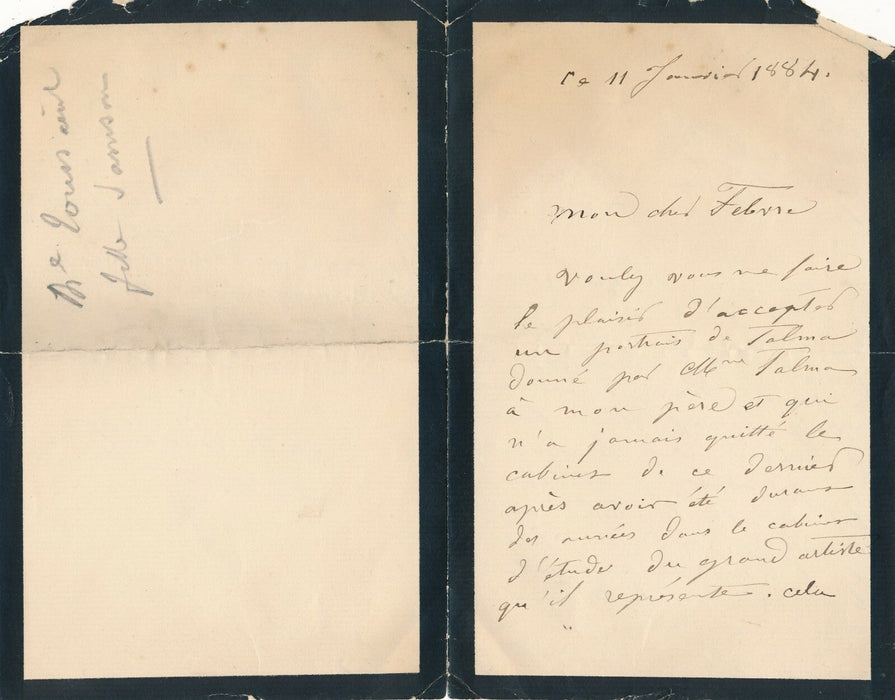 fille Samson
ce 11 Janvier 1884.
mon cher Febvre
voulez vous me faire
le plaisir d'accepter
un portrait de Talma
donné par Mme Talma
à mon père et qui
n'a jamais quitté le
cabinet de ce dernier
après avoir été durant
des années dans le cabinet
d'étude du grand artiste
qu'il représente. cela